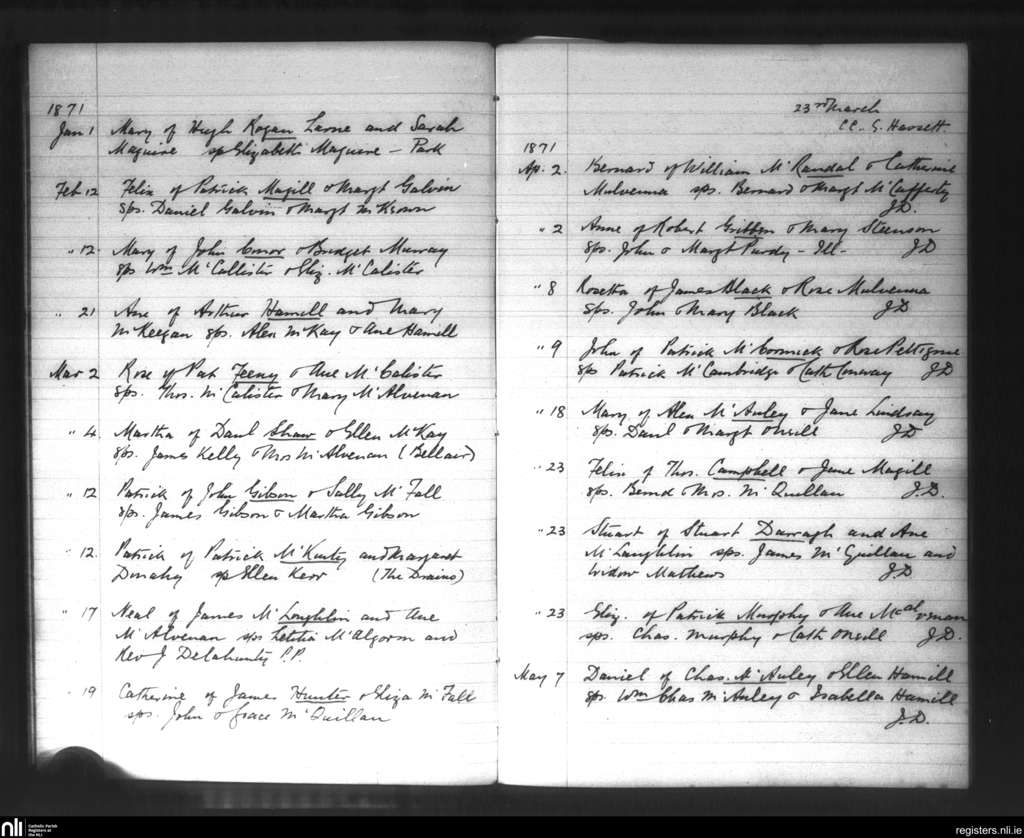 1871
Jan 1 Mary of Hugh Kogan Larne and Sarah
Maguire sp Elizabeth Maguire – Park
Feb 12 Felix of Patrick Magill & Margt Galvin
Sps. Daniel Galvin & Margt McKeown
" 12. Mary of John Conor & Bridget Murray
sps Wm McCallister & Eliz. McCalister
" 21 Ane of Arthur Hamill and Mary
McKeegan sps. Alex McKay & Ane Hamill
Mar 2 Rose of Pat Feeny & Ane McCalister
sps. Thos. McCalister & Mary McAlvenan
" 4. Martha of Danl Shaw & Ellen McKay
sps. James Kelly & Mrs McAlvenan (Bellair)
" 12 Patrick of John Gibson & Sally McFall
sps. James Gibson & Martha Gibson
" 12. Patrick of Patrick McKinty and Margaret
Donahy sp Ellen Kerr (The Drains)
" 17 Neal of James McLoughlin and Ane
McAlvenan sps Letitia McAlgorm and
Rev J Delahunty P.P.
" 19 Catherine of James Hunter & Eliza McFall
sps. John & Grace McQuillan
23rd March
CC. G. Hassett.
1871
Ap. 2. Bernard of William McRandal & Catherine
Mulvenna sps. Bernard & Margt McCafferty
J.D.
" 2 Anne of Robert Gribben & Mary Steenson
sps. John & Margt Purdy – Ill – JD
" 8 Rosetta of James Black & Rose Mulvenna
Sps. John & Mary Black JD
" 9 John of Patrick McCormick & Rose Pettigrue
sps Patrick McCambridge & Cath Conway JD
" 18 Mary of Alex McAuley & Jane Lindsay
sps. Danl & Margt Oneill JD
" 23 Felix of Thos. Campbell & Jane Magill
sps. Bernd & Mrs. McQuillan J.D.
" 23 Stuart of Stuart Darragh and Ane
McLaughlin sps. James McQuillan and
Widow Mathews J.D
" 23 Eliz. of Patrick Murphy & Ane
sps. Chas. Murphy & Cath Oneill J.D.
May 7 Daniel of Chas. McAuley & Ellen Hamill
sps. Wm Chas McAuley & Isabella Hamill
J.D.
nli Catholic Parish
Registers at
the NLI
registers.nli.ie